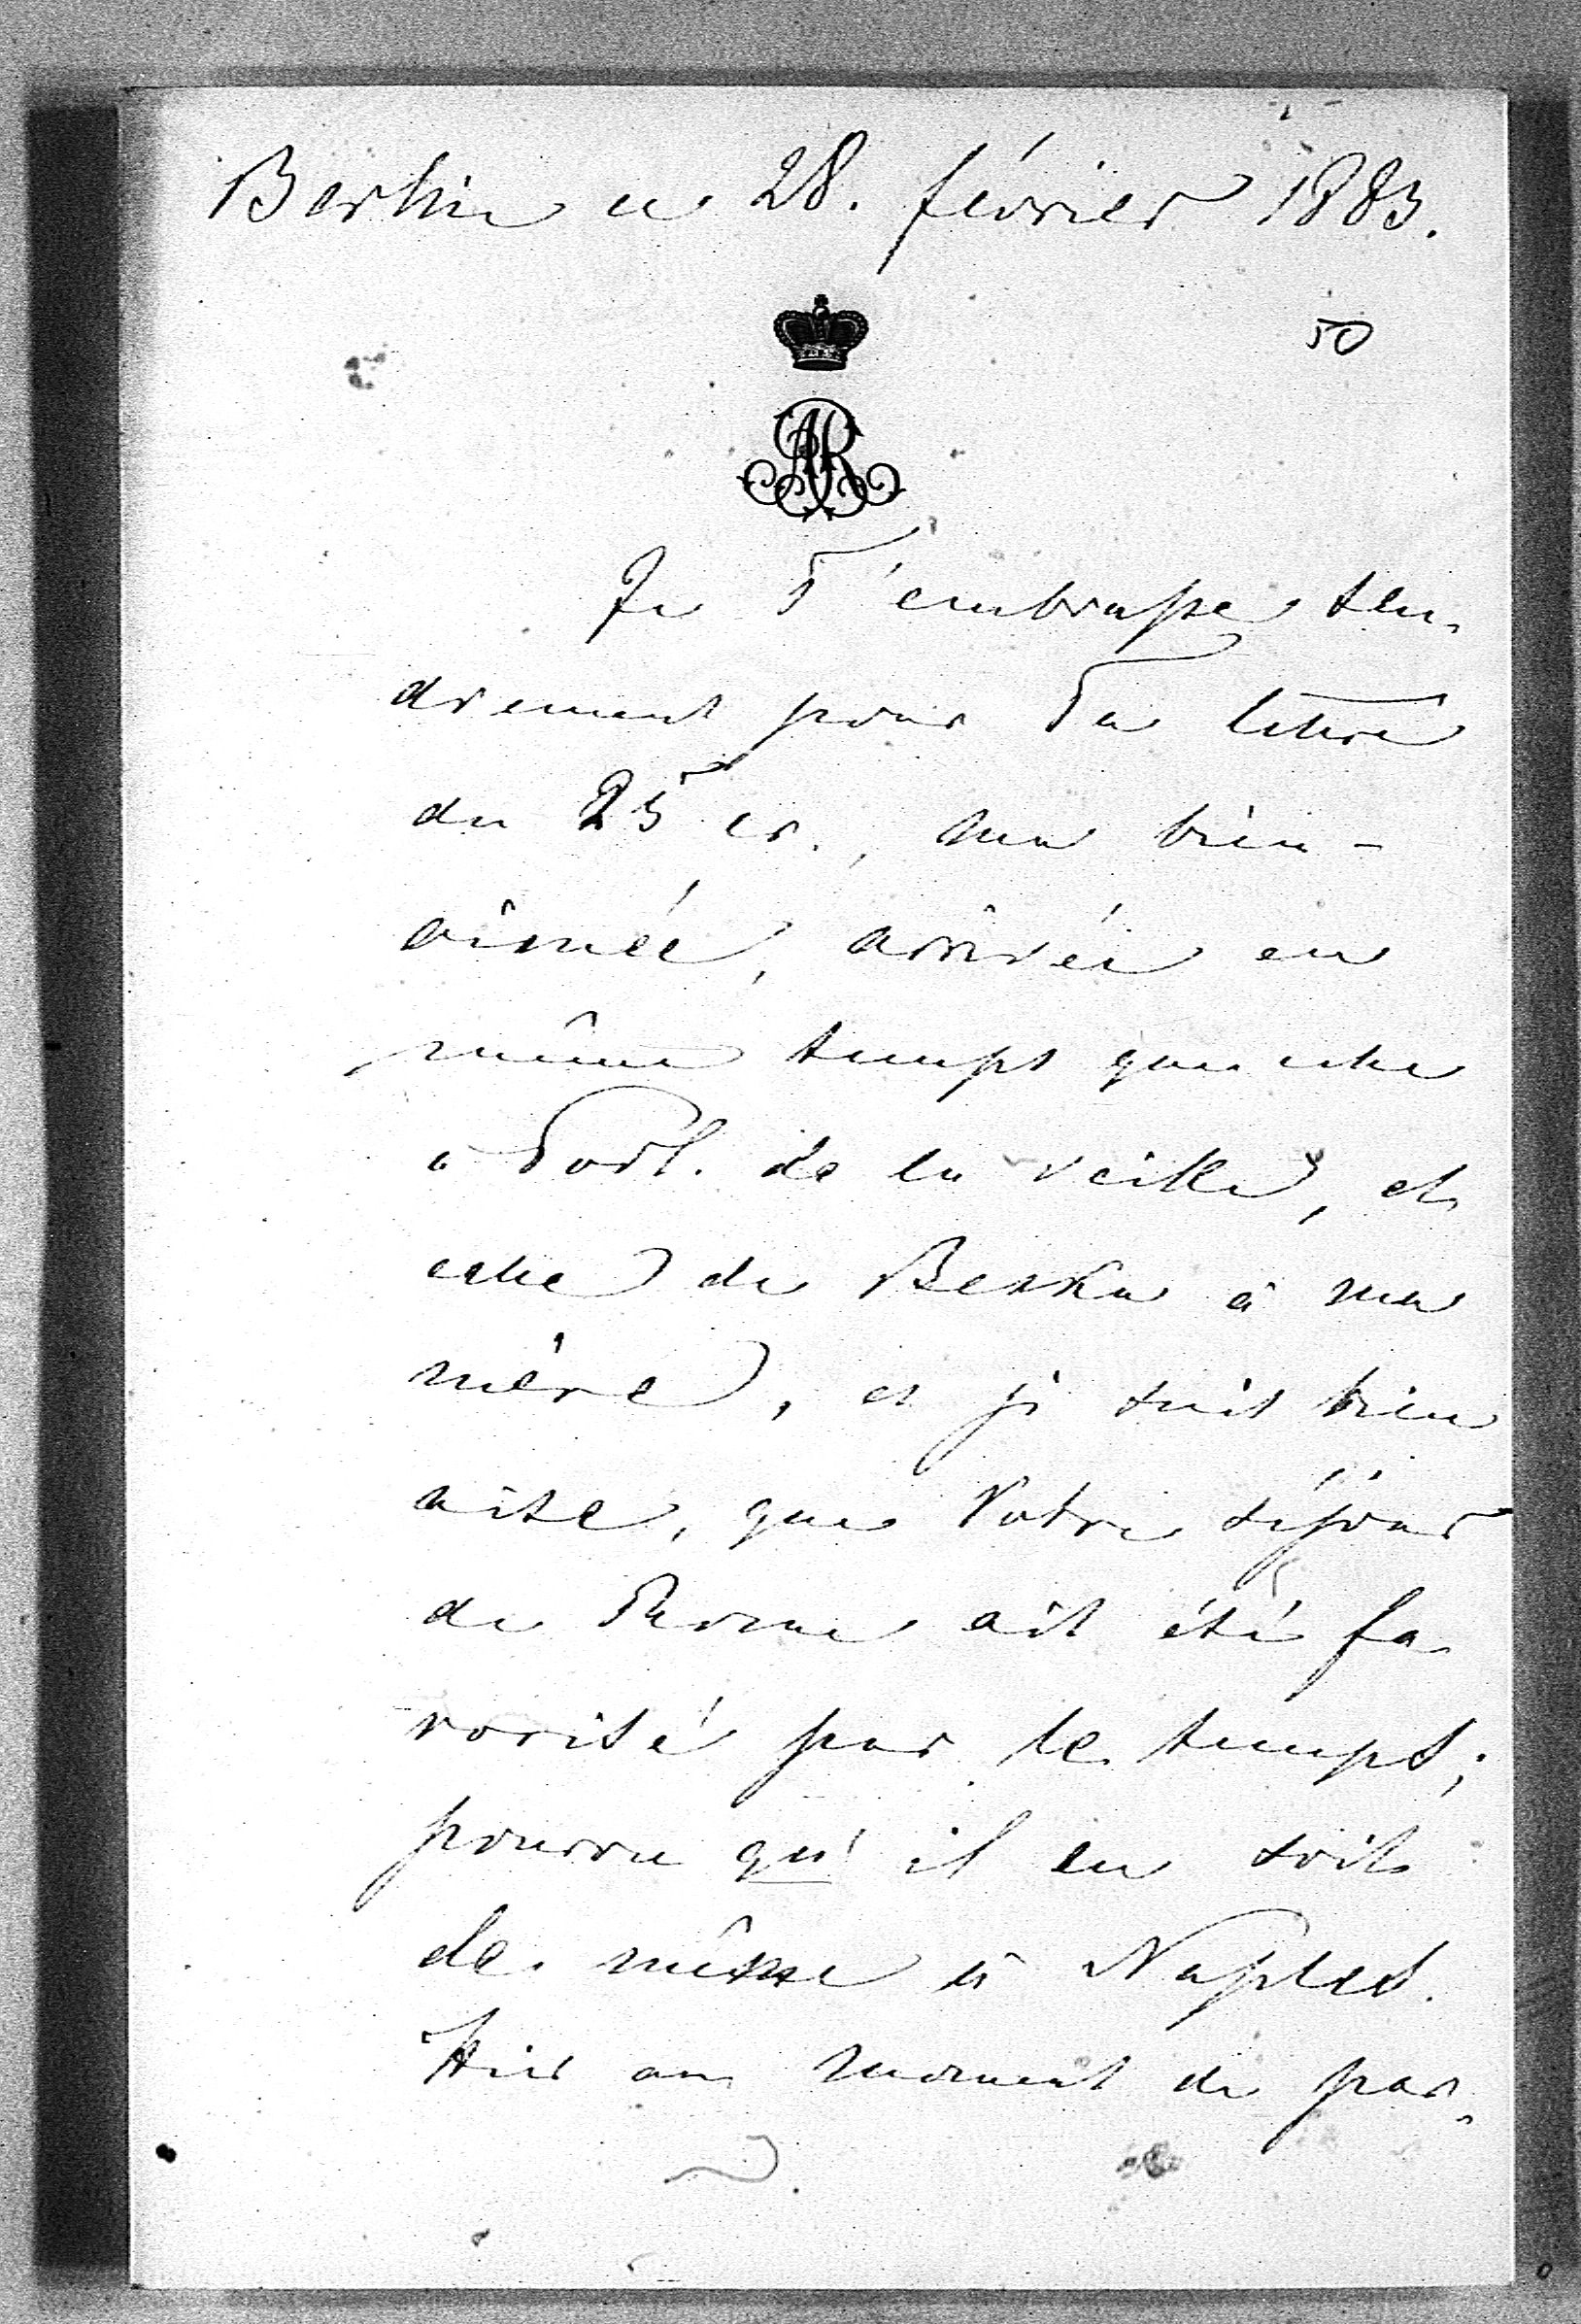 Berlin ce 28. février 1883.
50
AR
Je T'embrasse ten-
drement pour Ta lettre
du 25 cr., ma bien-
aimée, arrivée en
même temps que celle
à Torl. de la veille, et
celle de Beska à ma
mère, et je suis bien
aise, que Votre séjour
de Rome ait été fa-
vorisé par le temps;
pourvu qu'il en soit
de même à Naples.
Hier au moment de par-